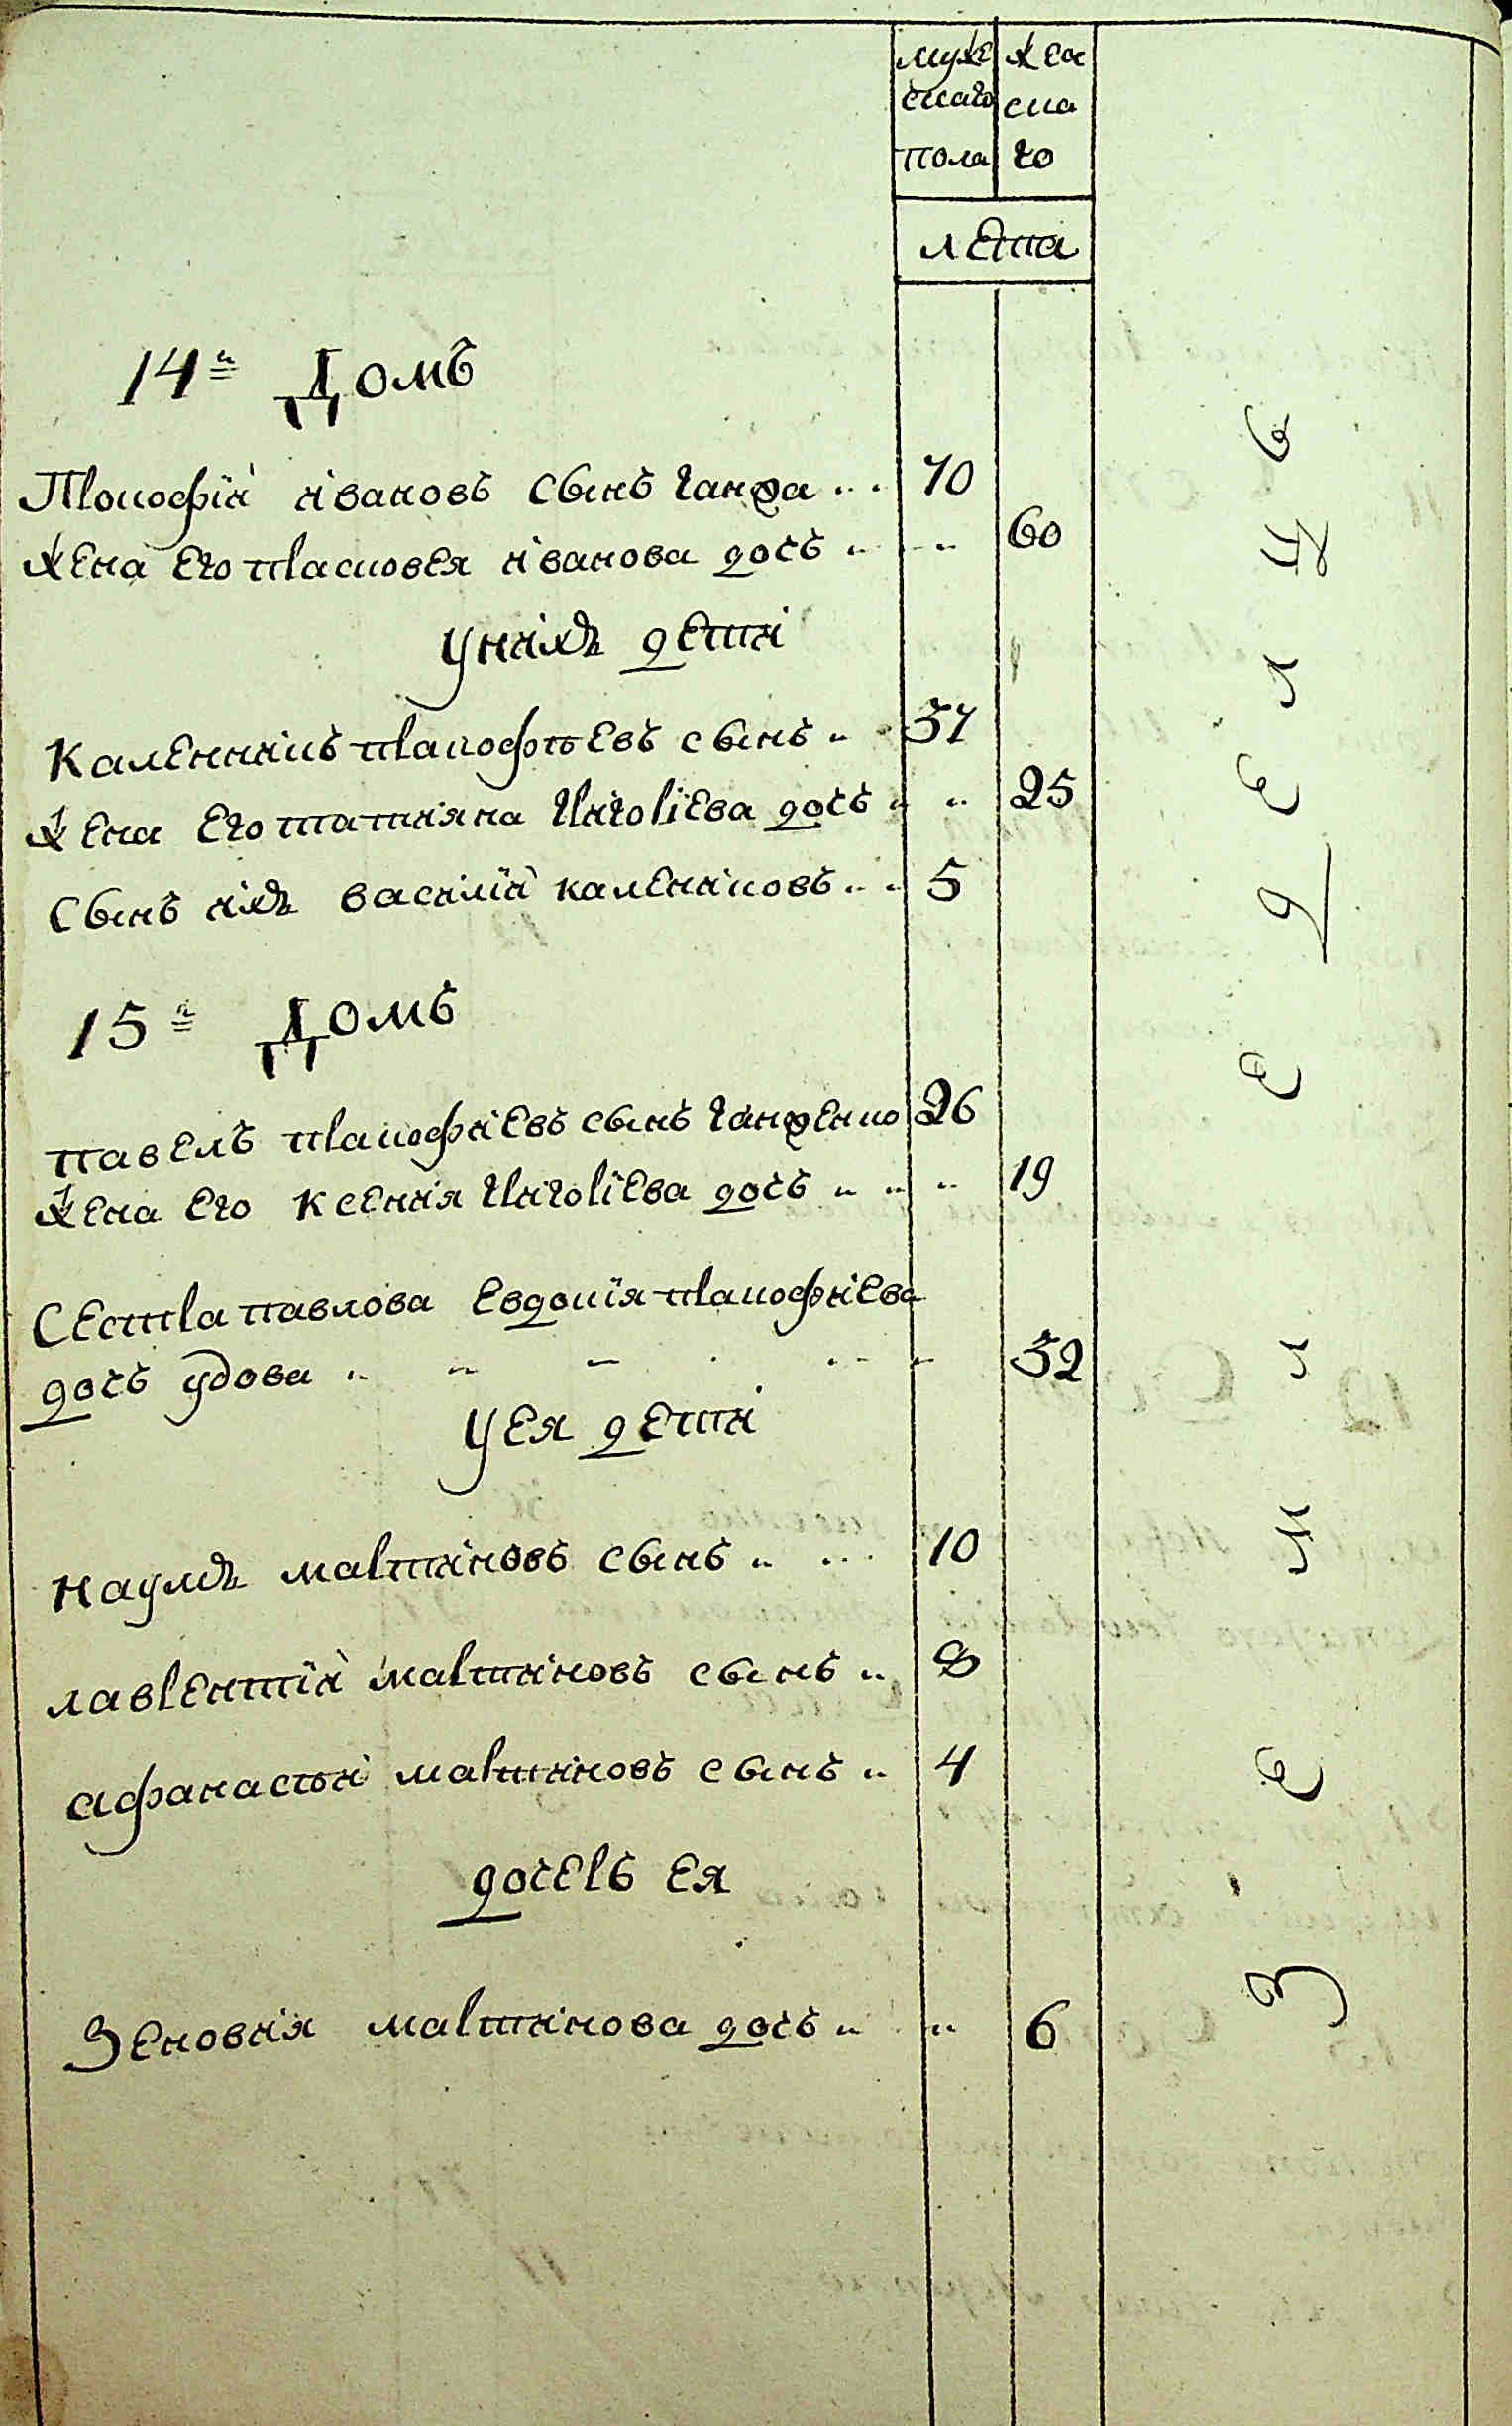 муже женс
скаго ска
пола го
лета
14й Домъ
Прокофiй ивановъ сынъ ганжа .. 70
Жена Его прасковея иванова дочь 60
Унихъ дети
Каленникъ прокофьевъ сынъ 37
Жена Его татияна григорiева дочь 25
Сынъ ихъ василiй калениковъ 5
15й Домъ
павелъ прокофиевъ сынъ ганженко 26
Жена Его Ксения григорiева дочь 19
Сестра павлова Евдокiя прокофиева
дочь удова 32
Уея дети
Наумъ мартиновъ сынъ 10
лаврентiй мартиновъ сынъ 8
афанасей мартиновъ сынъ 4
дочерь ея
Зеновия мартинова дочь 6
земледелцъ